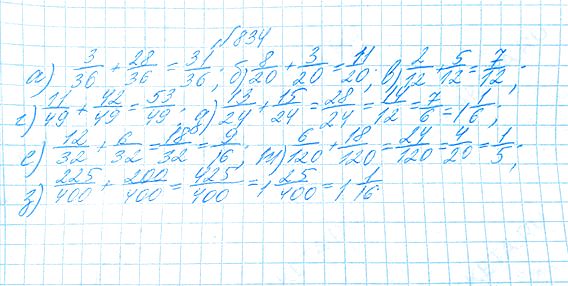 №834
а) 3/36 + 28/36 = 31/36; б) 8/20 + 3/20 = 11/20; в) 2/12 + 5/12 = 7/12;
г) 11/49 + 42/49 = 53/49; д) 13/24 + 15/24 = 28/24 = 14/12 = 7/6 = 1 1/6;
е) 12/32 + 6/32 = 18/32 = 9/16; ж) 6/120 + 18/120 = 24/120 = 4/20 = 1/5;
з) 225/400 + 200/400 = 425/400 = 1 25/400 = 1 1/16